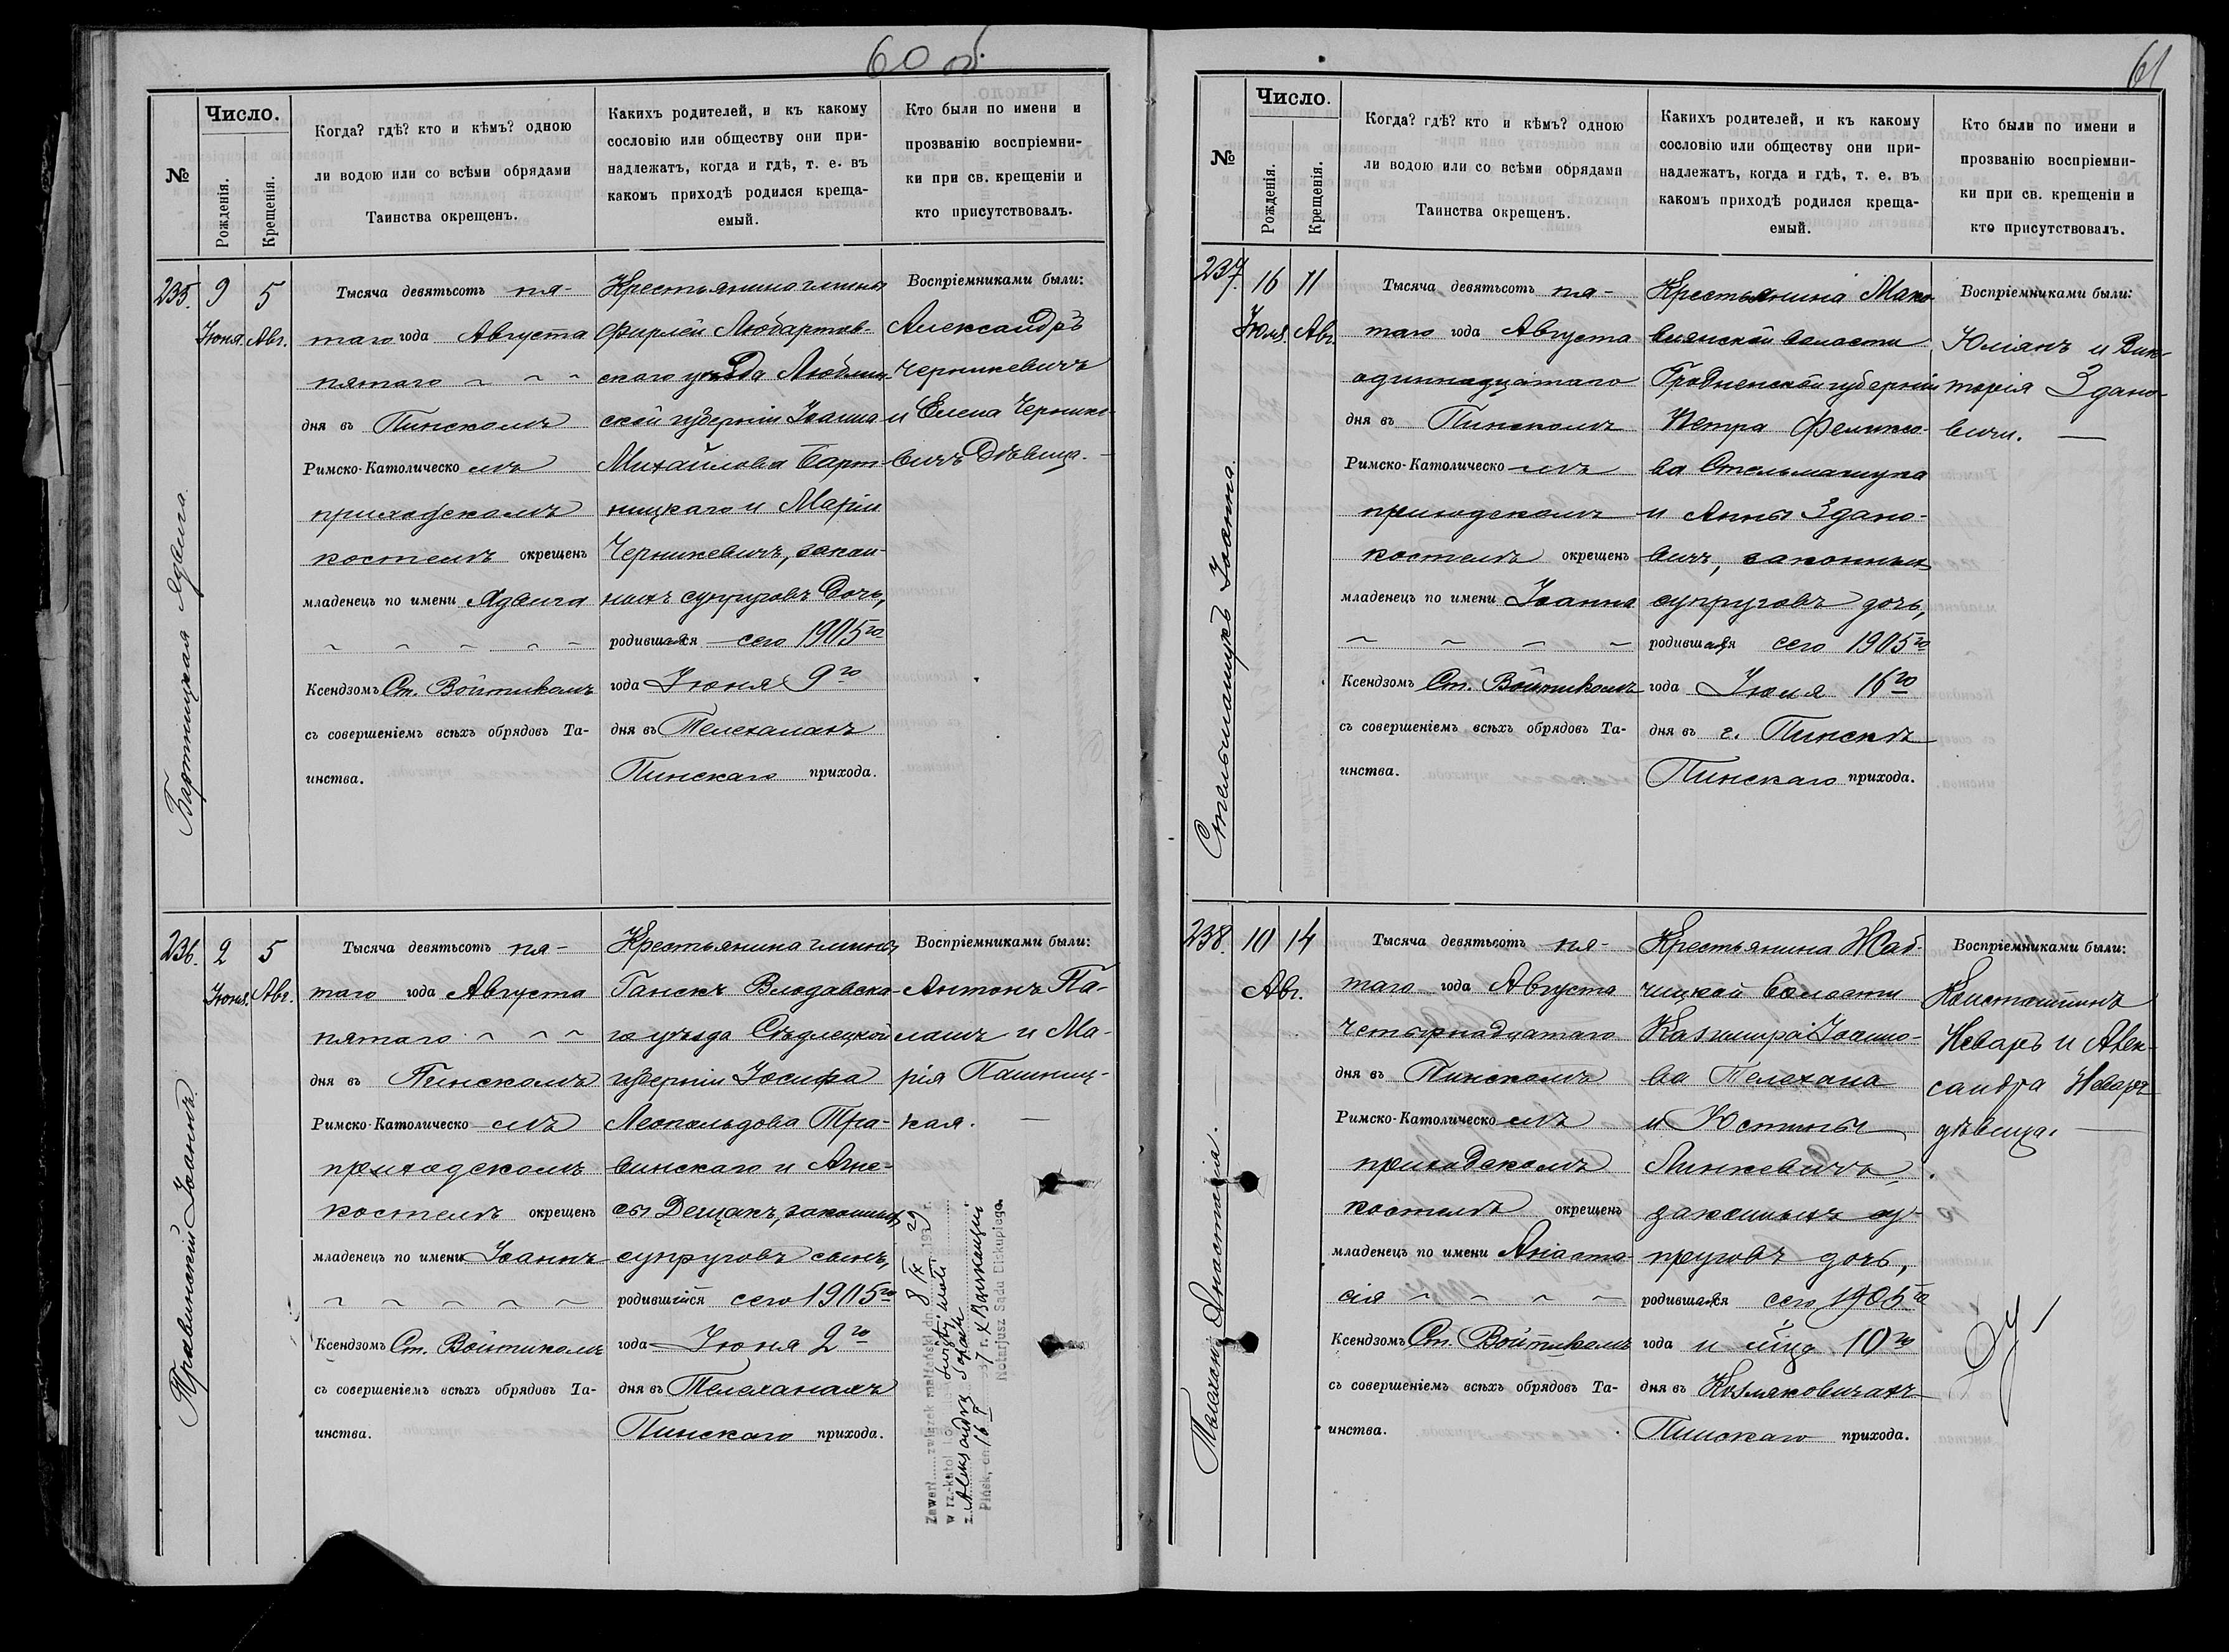 60 об.
№
Число.
Рожденія.
Крещенія.
Когда? гдѣ? кто и кѣмъ? одною
ли водою или со всѣми обрядами
Таинства окрещенъ.
Какихъ родителей, и къ какому
сословію или обществу они при-
надлежатъ, когда и гдѣ, т. е. въ
какомъ приходѣ родился креща-
емый.
Кто были по имени и
прозванію воспріемни-
ки при св. крещеніи и
кто присутствовалъ.
235.
9
Іюня.
5
Авг.
Бартницкая Ядвига
Тысяча девятьсотъ пя-
таго года Августа
пятаго
дня въ Пинскомъ
Римско-Католическомъ
приходскомъ
костелѣ окрещенъ
младенецъ по имени Ядвига
Ксендзомъ Ст. Войтикомъ
съ совершеніемъ всѣхъ обрядовъ Та-
инства.
Крестьянина гмины
Фирлей Любартов-
скаго уѣзда Люблин-
ской губерніи Іоанна
Михайлова Барт-
ницкаго и Маріи
Черникевичъ, закон-
ныхъ супруговъ дочь,
родившаяся сего 1905го
года Іюня 9го
дня въ Телеханахъ
Пинскаго прихода.
Воспріемниками были:
Александръ
Черникевичъ
и Елена Чернике-
вичъ дѣвица.
236.
2
Іюня.
5
Авг.
Травинскій Іоаннъ.
Тысяча девятьсотъ пя-
таго года Августа
пятаго
дня въ Пинскомъ
Римско-Католическомъ
приходскомъ
костелѣ окрещенъ
младенецъ по имени Іоаннъ
Ксендзомъ Ст. Войтикомъ
съ совершеніемъ всѣхъ обрядовъ Та-
инства.
Крестьянина гмины
Ганскъ Влодавска-
го уѣзда Сѣдлецкой
губерніи Іосифа
Леопольдова Тра-
винскаго и Агне-
сы Дещакъ, законныхъ
супруговъ сынъ,
родившійся сего 1905го
года Іюня 2го
дня въ Телеханахъ
Пинскаго прихода.
Воспріемниками были:
Антонъ Па-
лашъ и Ма-
рія Пашниц-
кая.
Zawarł związek małżeński dn. 8 IX 1929 r.
w rz.-katol.
z Aleksandrą
Pińsk, dn. 16 7 r.
Notarjusz Sądu Biskupiego.
61
№
Число.
Рожденія.
Крещенія.
Когда? гдѣ? кто и кѣмъ? одною
ли водою или со всѣми обрядами
Таинства окрещенъ.
Какихъ родителей, и къ какому
сословію или обществу они при-
надлежатъ, когда и гдѣ, т. е. въ
какомъ приходѣ родился креща-
емый.
Кто были по имени и
прозванію воспріемни-
ки при св. крещеніи и
кто присутствовалъ.
237.
16
Іюля.
11
Авг.
Стельмащукъ Іоанна.
Тысяча девятьсотъ пя-
таго года Августа
одиннадцатаго
дня въ Пинскомъ
Римско-Католическомъ
приходскомъ
костелѣ окрещенъ
младенецъ по имени Іоанна
Ксендзомъ Ст. Войтикомъ
съ совершеніемъ всѣхъ обрядовъ Та-
инства.
Крестьянина Мако-
влянской волости
Гродненской губерніи
Петра Феликсо-
ва Стельмащука
и Анны Здано-
вичъ, законныхъ
супруговъ дочь,
родившаяся сего 1905го
года Іюля 16го
дня въ г. Пинскѣ
Пинскаго прихода.
Воспріемниками были:
Юліанъ и Вик-
торія Здано-
вичи.
238.
10
14
Авг.
Телеханъ Анастасія.
Тысяча девятьсотъ пя-
таго года Августа
четырнадцатаго
дня въ Пинскомъ
Римско-Католическомъ
приходскомъ
костелѣ окрещенъ
младенецъ по имени Анаста-
сія
Ксендзомъ Ст. Войтикомъ
съ совершеніемъ всѣхъ обрядовъ Та-
инства.
Крестьянина Жаб-
чицкой волости
Казимира Іоанно-
ва Телехана
и Юстины
Линкевичъ,
законныхъ су-
пруговъ дочь,
родившаяся сего 1905го
года и м̃ца 10го
дня въ Козляковичахъ
Пинскаго прихода.
Воспріемниками были:
Константинъ
Неваръ и Алек-
сандра Неваръ
дѣвица.